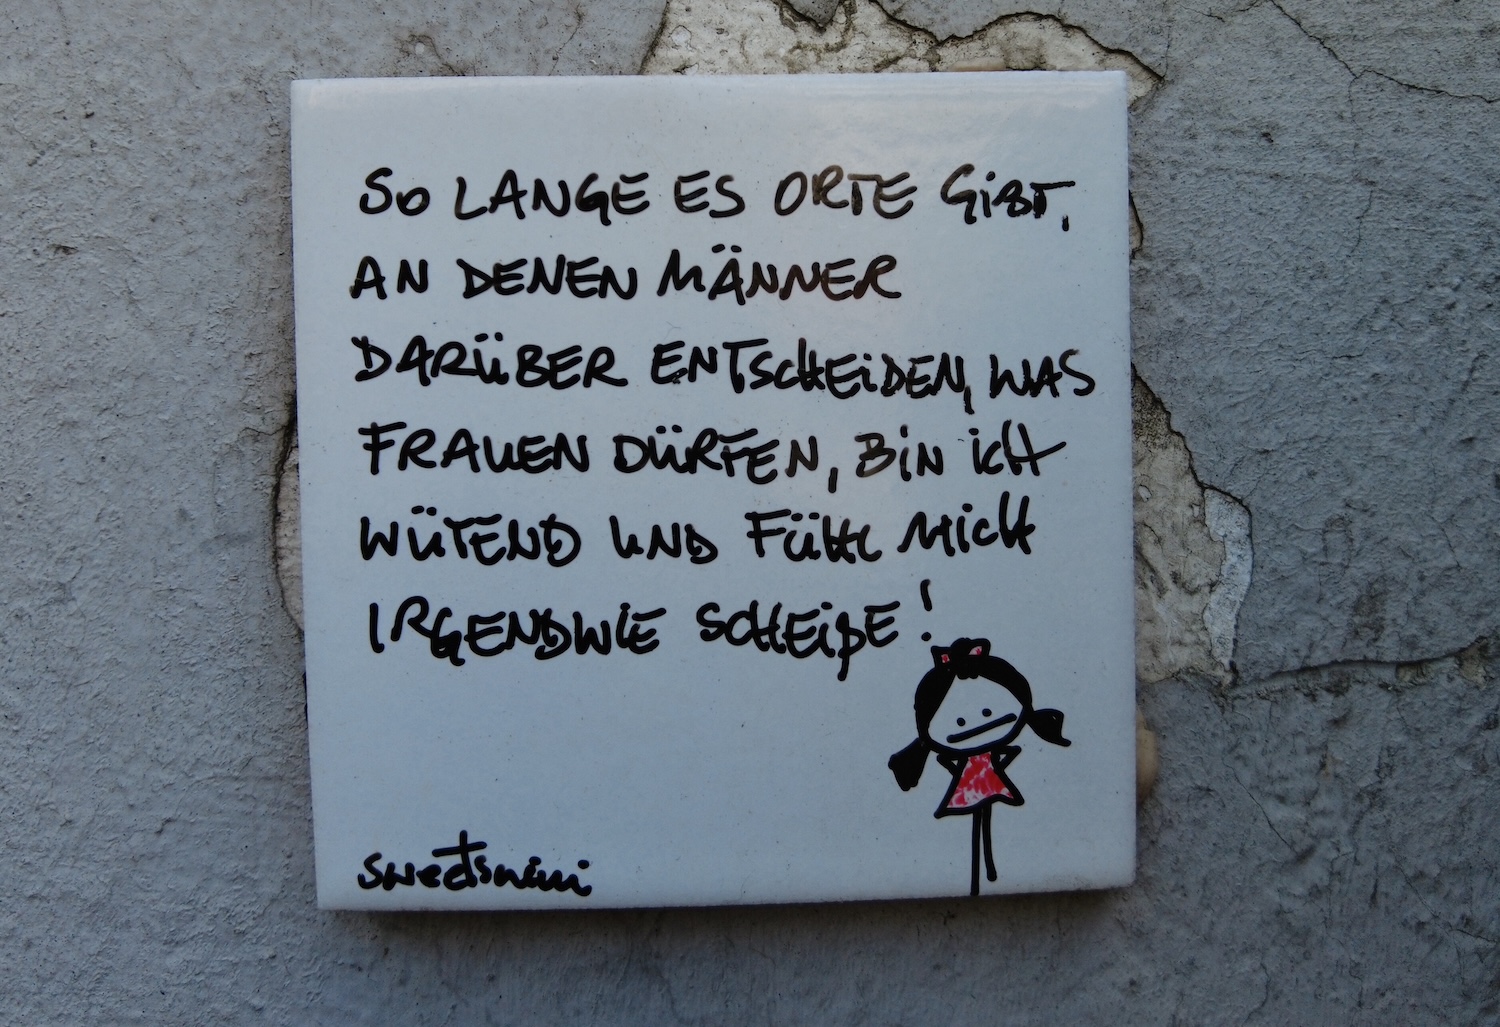 So LANGE ES ORTE GiBT,
AN DENEN MÄNNER
DARÜBER ENTSCHEiDEN, WAS
FRAUEN DÜRFEN, BiN iCH
WÜTEND UND FÜHL MiCH
IRGENDWIE SCHEißE!
sweetsnini